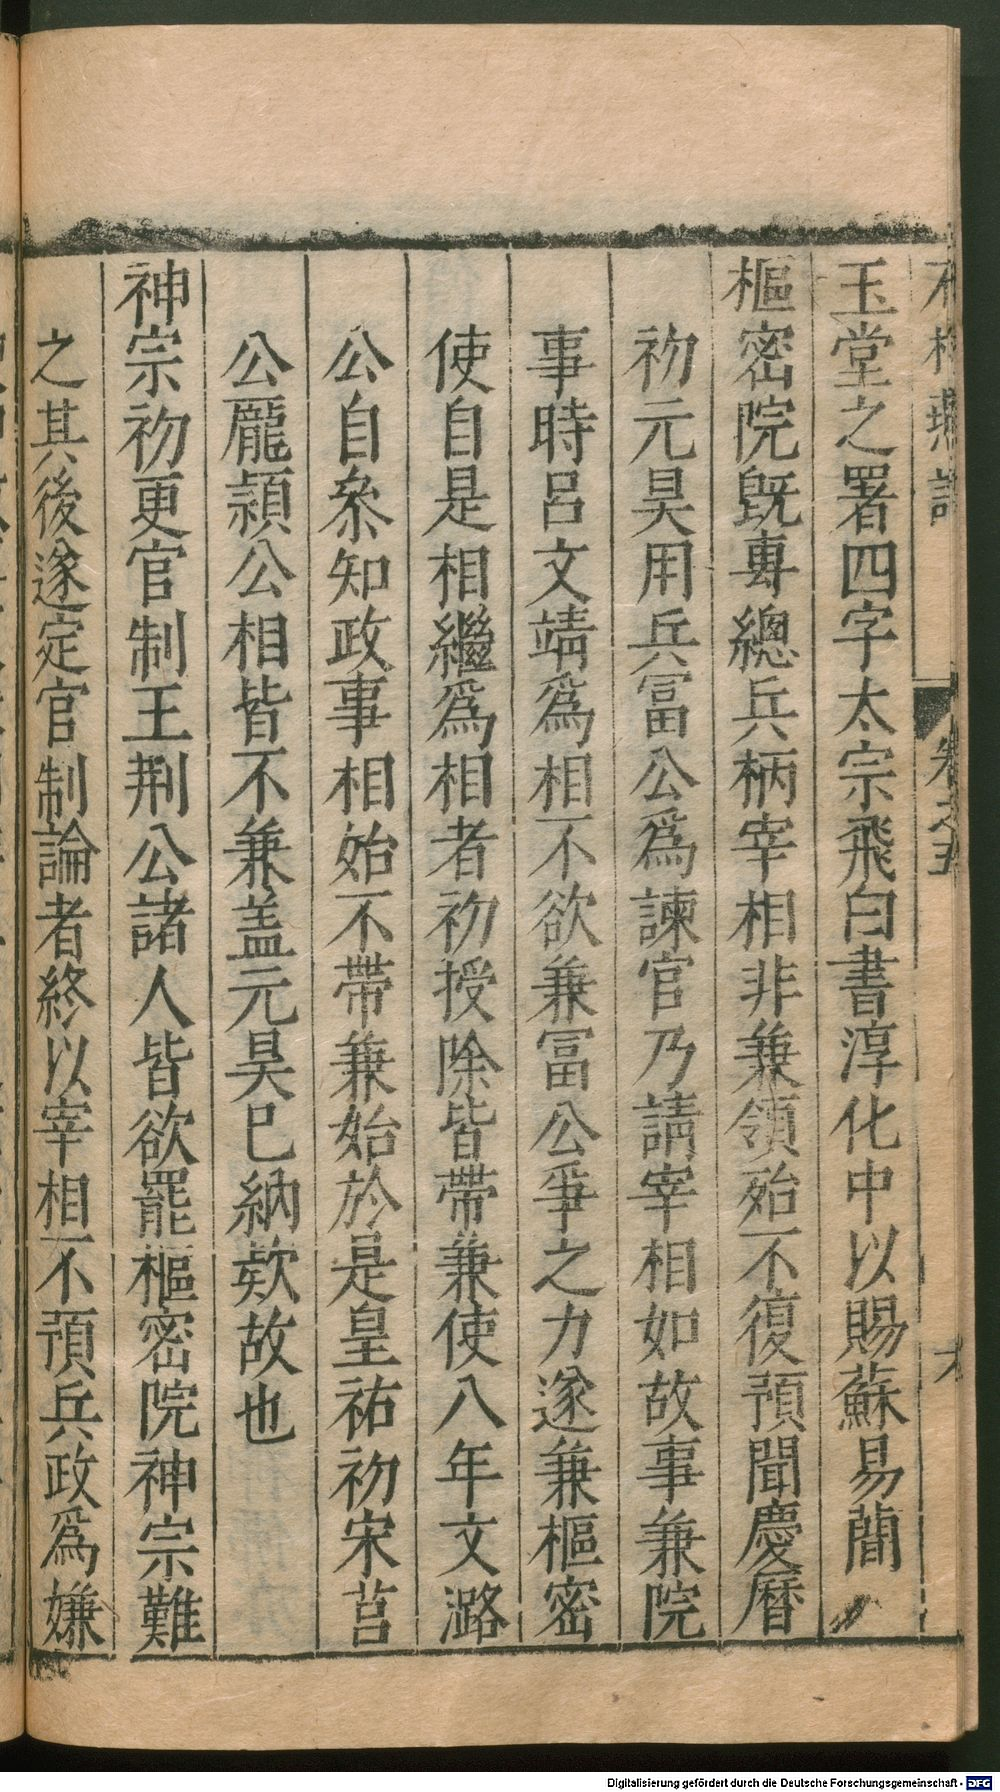 玉堂之署四字太宗飛白書淳化中以賜蘇易簡
樞密院旣專總兵柄宰相非兼領殆不復預聞慶曆
初元昊用兵富公爲諫官乃請宰相如故事兼院
事時呂文靖爲相不欲兼富公爭之力遂兼樞密
使自是相繼爲相者初授除皆帶兼使八年文潞
公自叅知政事相始不帶兼始於是皇祐初宋莒
公龐頴公相皆不兼盖元昊巳納欵故也
神宗初更官制王荆公諸人皆欲罷樞密院神宗難
之其後遂定官制論者終以宰相不預兵政爲嫌
卷之五
Digitalisierung gefördert durch die Deutsche Forschungsgemeinschaft - DFG